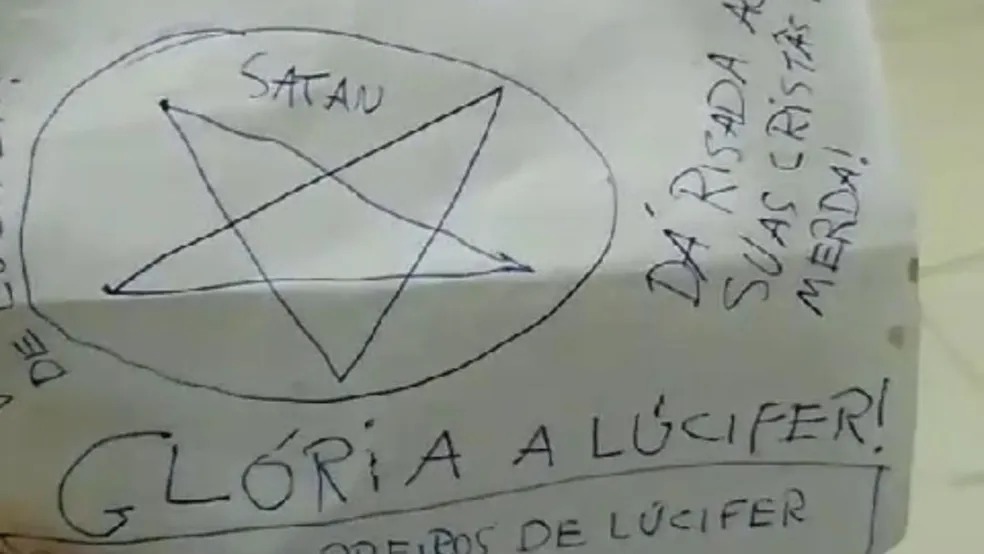 SATAN
DÁ RISADA
SUAS CRISTÃS
MERDA!
DE
GLÓRIA A LÚCIFER!
DE LÚCIFER